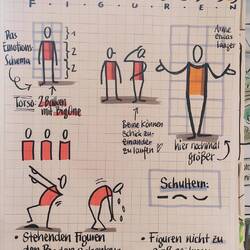 FIGUREN
Das
Emotions-
Schema
1
2
2
Torso: 2 Balken
mit Biglinie
Arme
etwas
länger
Beine können
schick zu-
einander
zu laufen
hier nochmal
größer
Schultern:
• Stehenden Figuren
• Figuren nicht zu